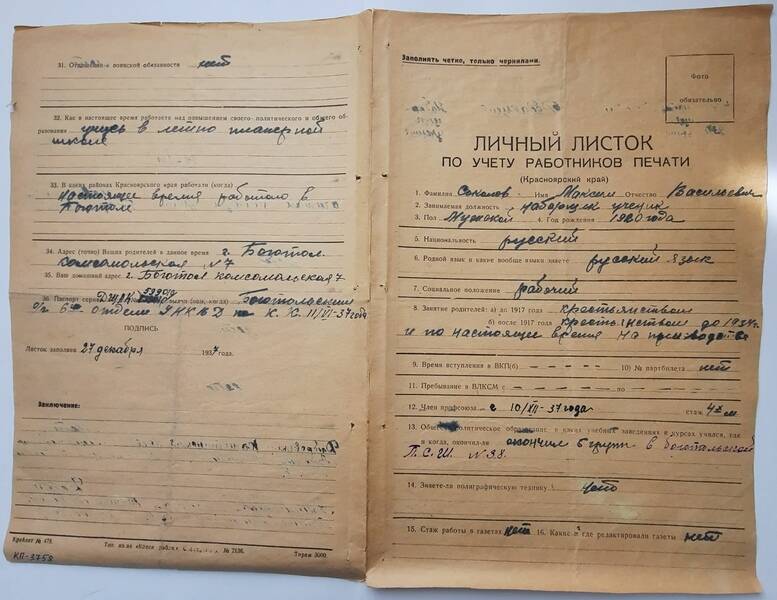 31. Отношение к воинской обязанности нет
32. Как в настоящее время работаете над повышением своего политического и общего об-
разования учусь в летно планерной
школе
33. В каких районах Красноярского края работали (когда)
настоящее время работаю в
Боготол
34. Адрес (точно) Ваших родителей в данное время г. Боготол.
комсомольская №7
35. Ваш домашний адрес г. Боготол комсомольская 7
36. Паспорт серия 533010 выдан (кем, когда) Боготольским
о/г 6 отделе УНКВД по К. К. 11/VI-37 года
ПОДПИСЬ
Листок заполнен 27 декабря 1937 года.
Заключение:
Крайлит № 478. Тип. изд-ва «Красн. рабоч.» № 7136. Тираж 3000
КП-3758
Заполнять четко, только чернилами.
Фото
обязательно
ЛИЧНЫЙ ЛИСТОК
ПО УЧЕТУ РАБОТНИКОВ ПЕЧАТИ
(Красноярский край)
1. Фамилия Соколов Имя Максим Отчество Васильевич
2. Занимаемая должность наборщик ученик
3. Пол Мужской 4. Год рождения 1920 года
5. Национальность русский
6. Родной язык и какие вообще языки знаете русский язык
7. Социальное положение рабочий
8. Занятие родителей: а) до 1917 года крестьянством
б) после 1917 года крестьянством до 1934 г.
и по настоящее время на производстве
9. Время вступления в ВКП(б) - 10) № партбилета нет
11. Пребывание в ВЛКСМ с - по -
12. Член профсоюза с 10/XII-37 года стаж 4х м.
13. Общее и политическое образование, в каких учебных заведениях и курсах учился, где
и когда, окончил-ли окончил 6 групп в боготольской
П.С.Ш. №38.
14. Знаете-ли полиграфическую технику нет
15. Стаж работы в газетах нет 16. Какие и где редактировали газеты нет